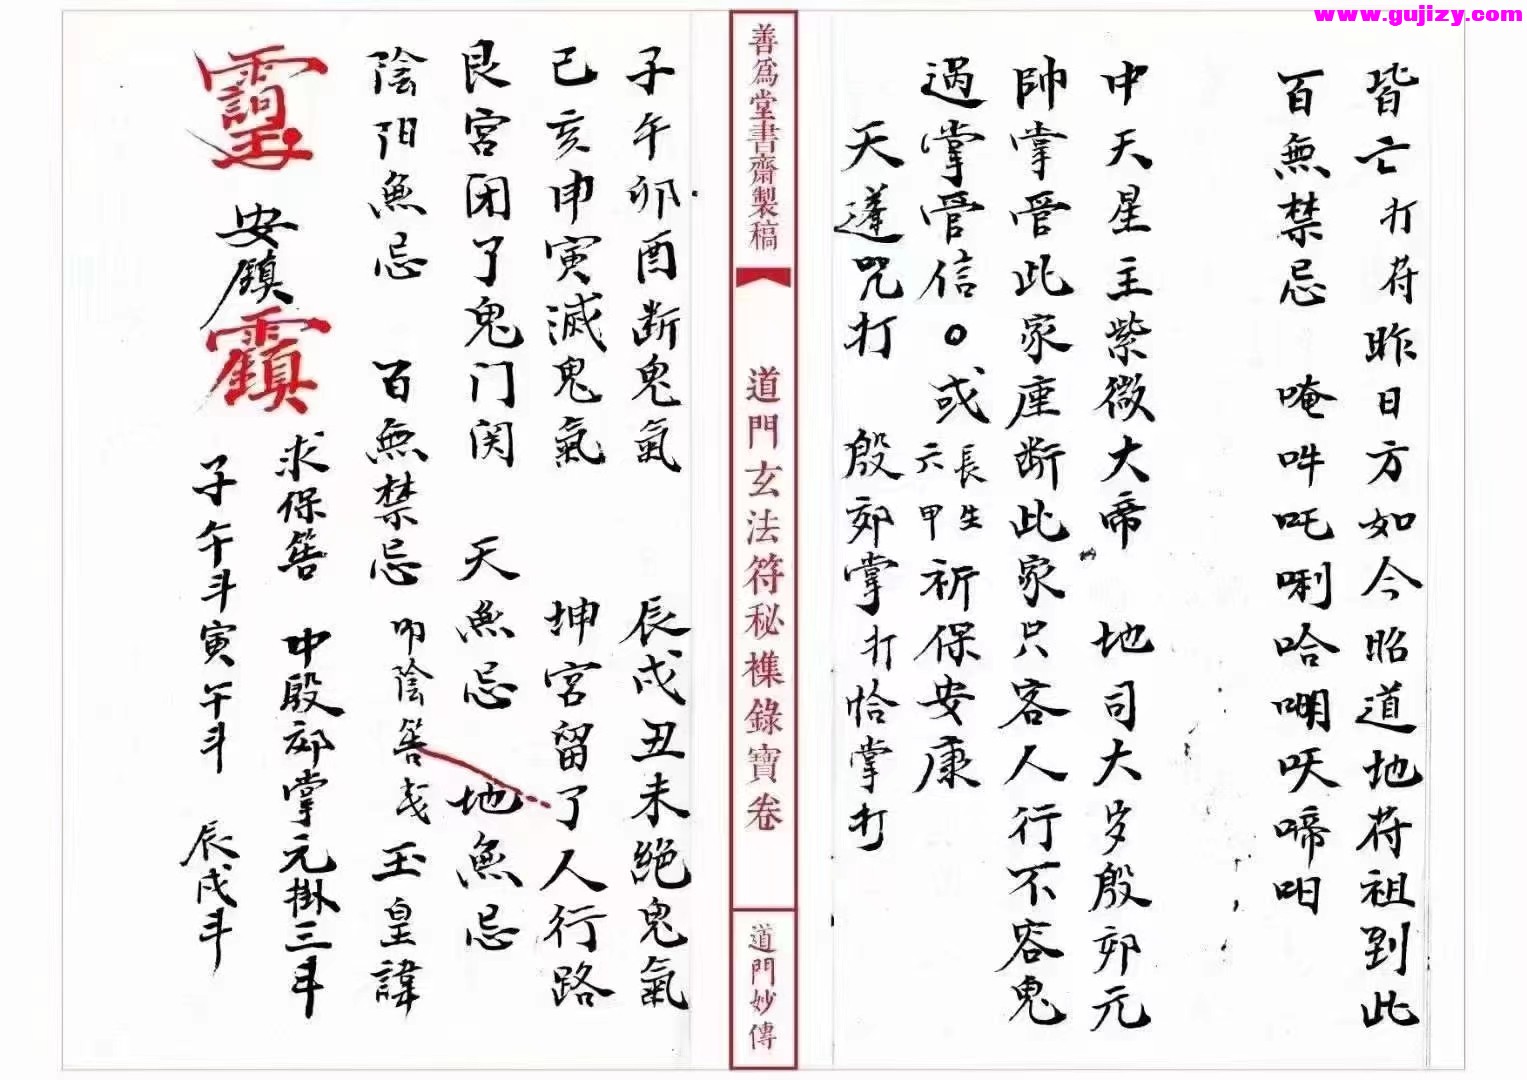 www.gujizy.com
皆亡打符昨日方如今昭道地符祖到此
百無禁忌 唵吽吒唎哈嘣呋啼呾
中天星主紫微大帝 地司大岁殷郊元
帥掌管此家座断此家只客人行不容鬼
過掌管信。或長生六甲祈保安康
天蓬咒打 殷郊掌打恰掌打
善為堂書齋製稿
道門玄法符秘襍錄寶卷
道門妙傳
子午卯酉断鬼氣 辰戌丑未絕鬼氣
已亥申寅滅鬼氣 坤宮留了人行路
艮宮闭了鬼门関 天無忌 地無忌
陰阳無忌 百無禁忌 叩陰筶 玉皇諱
安鎮
求保筶 中殷郊掌元掛三斗
子午斗寅午斗 辰戌斗